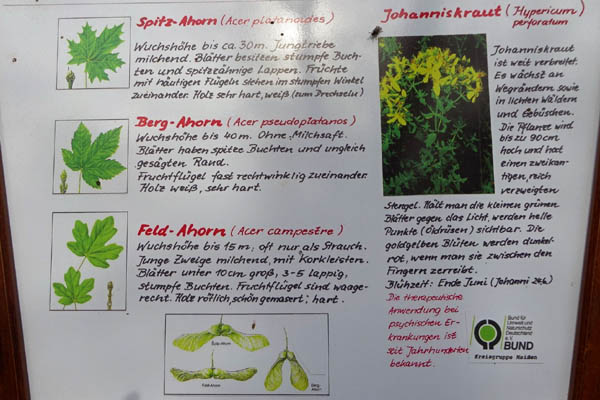 Spitz-Ahorn (Acer platanoides)
Wuchshöhe bis ca 30m. Jungtriebe
milchend. Blätter besitzen stumpfe Buch-
ten und spitzzähnige Lappen. Früchte
mit häutigen Flügeln stehen im stumpfen Winkel
zueinander. Holz sehr hart, weiß (zum Drechseln)
Berg-Ahorn (Acer pseudoplatanos)
Wuchshöhe bis 40m. Ohne Milchsaft.
Blätter haben spitze Buchten und ungleich
gesägten Rand.
Fruchtflügel fast rechtwinklig zueinander.
Holz weiß, sehr hart.
Feld-Ahorn (Acer campestre)
Wuchshöhe bis 15m; oft nur als Strauch.
Junge Zweige milchend, mit Korkleisten.
Blätter unter 10cm groß, 3-5 lappig,
stumpfe Buchten. Fruchtflügel sind waage-
recht. Holz rötlich, schön gemasert; hart.
Spitz-Ahorn
Feld-Ahorn
Berg-
Ahorn
Johanniskraut (Hypericum)
perforatum
Johanniskraut
ist weit verbreitet.
Es wächst an
Wegrändern sowie
in lichten Wäldern
und Gebüschen.
Die Pflanze wird
bis zu 90cm
hoch und hat
einen zweikan-
tigen, reich
verzweigten
Stengel. Hält man die kleinen grünen
Blätter gegen das Licht, werden helle
Punkte (Öldrüsen) sichtbar. Die
goldgelben Blüten werden dunkel-
rot, wenn man sie zwischen den
Fingern zerreibt.
Blühzeit: Ende Juni (Johanni 24.6.)
Die therapeutische
Anwendung bei
psychischen Er-
krankungen ist
seit Jahrhunderten
bekannt.
Bund für
Umwelt und
Naturschutz
Deutschland
e.V.
BUND
Kreisgruppe Meiden